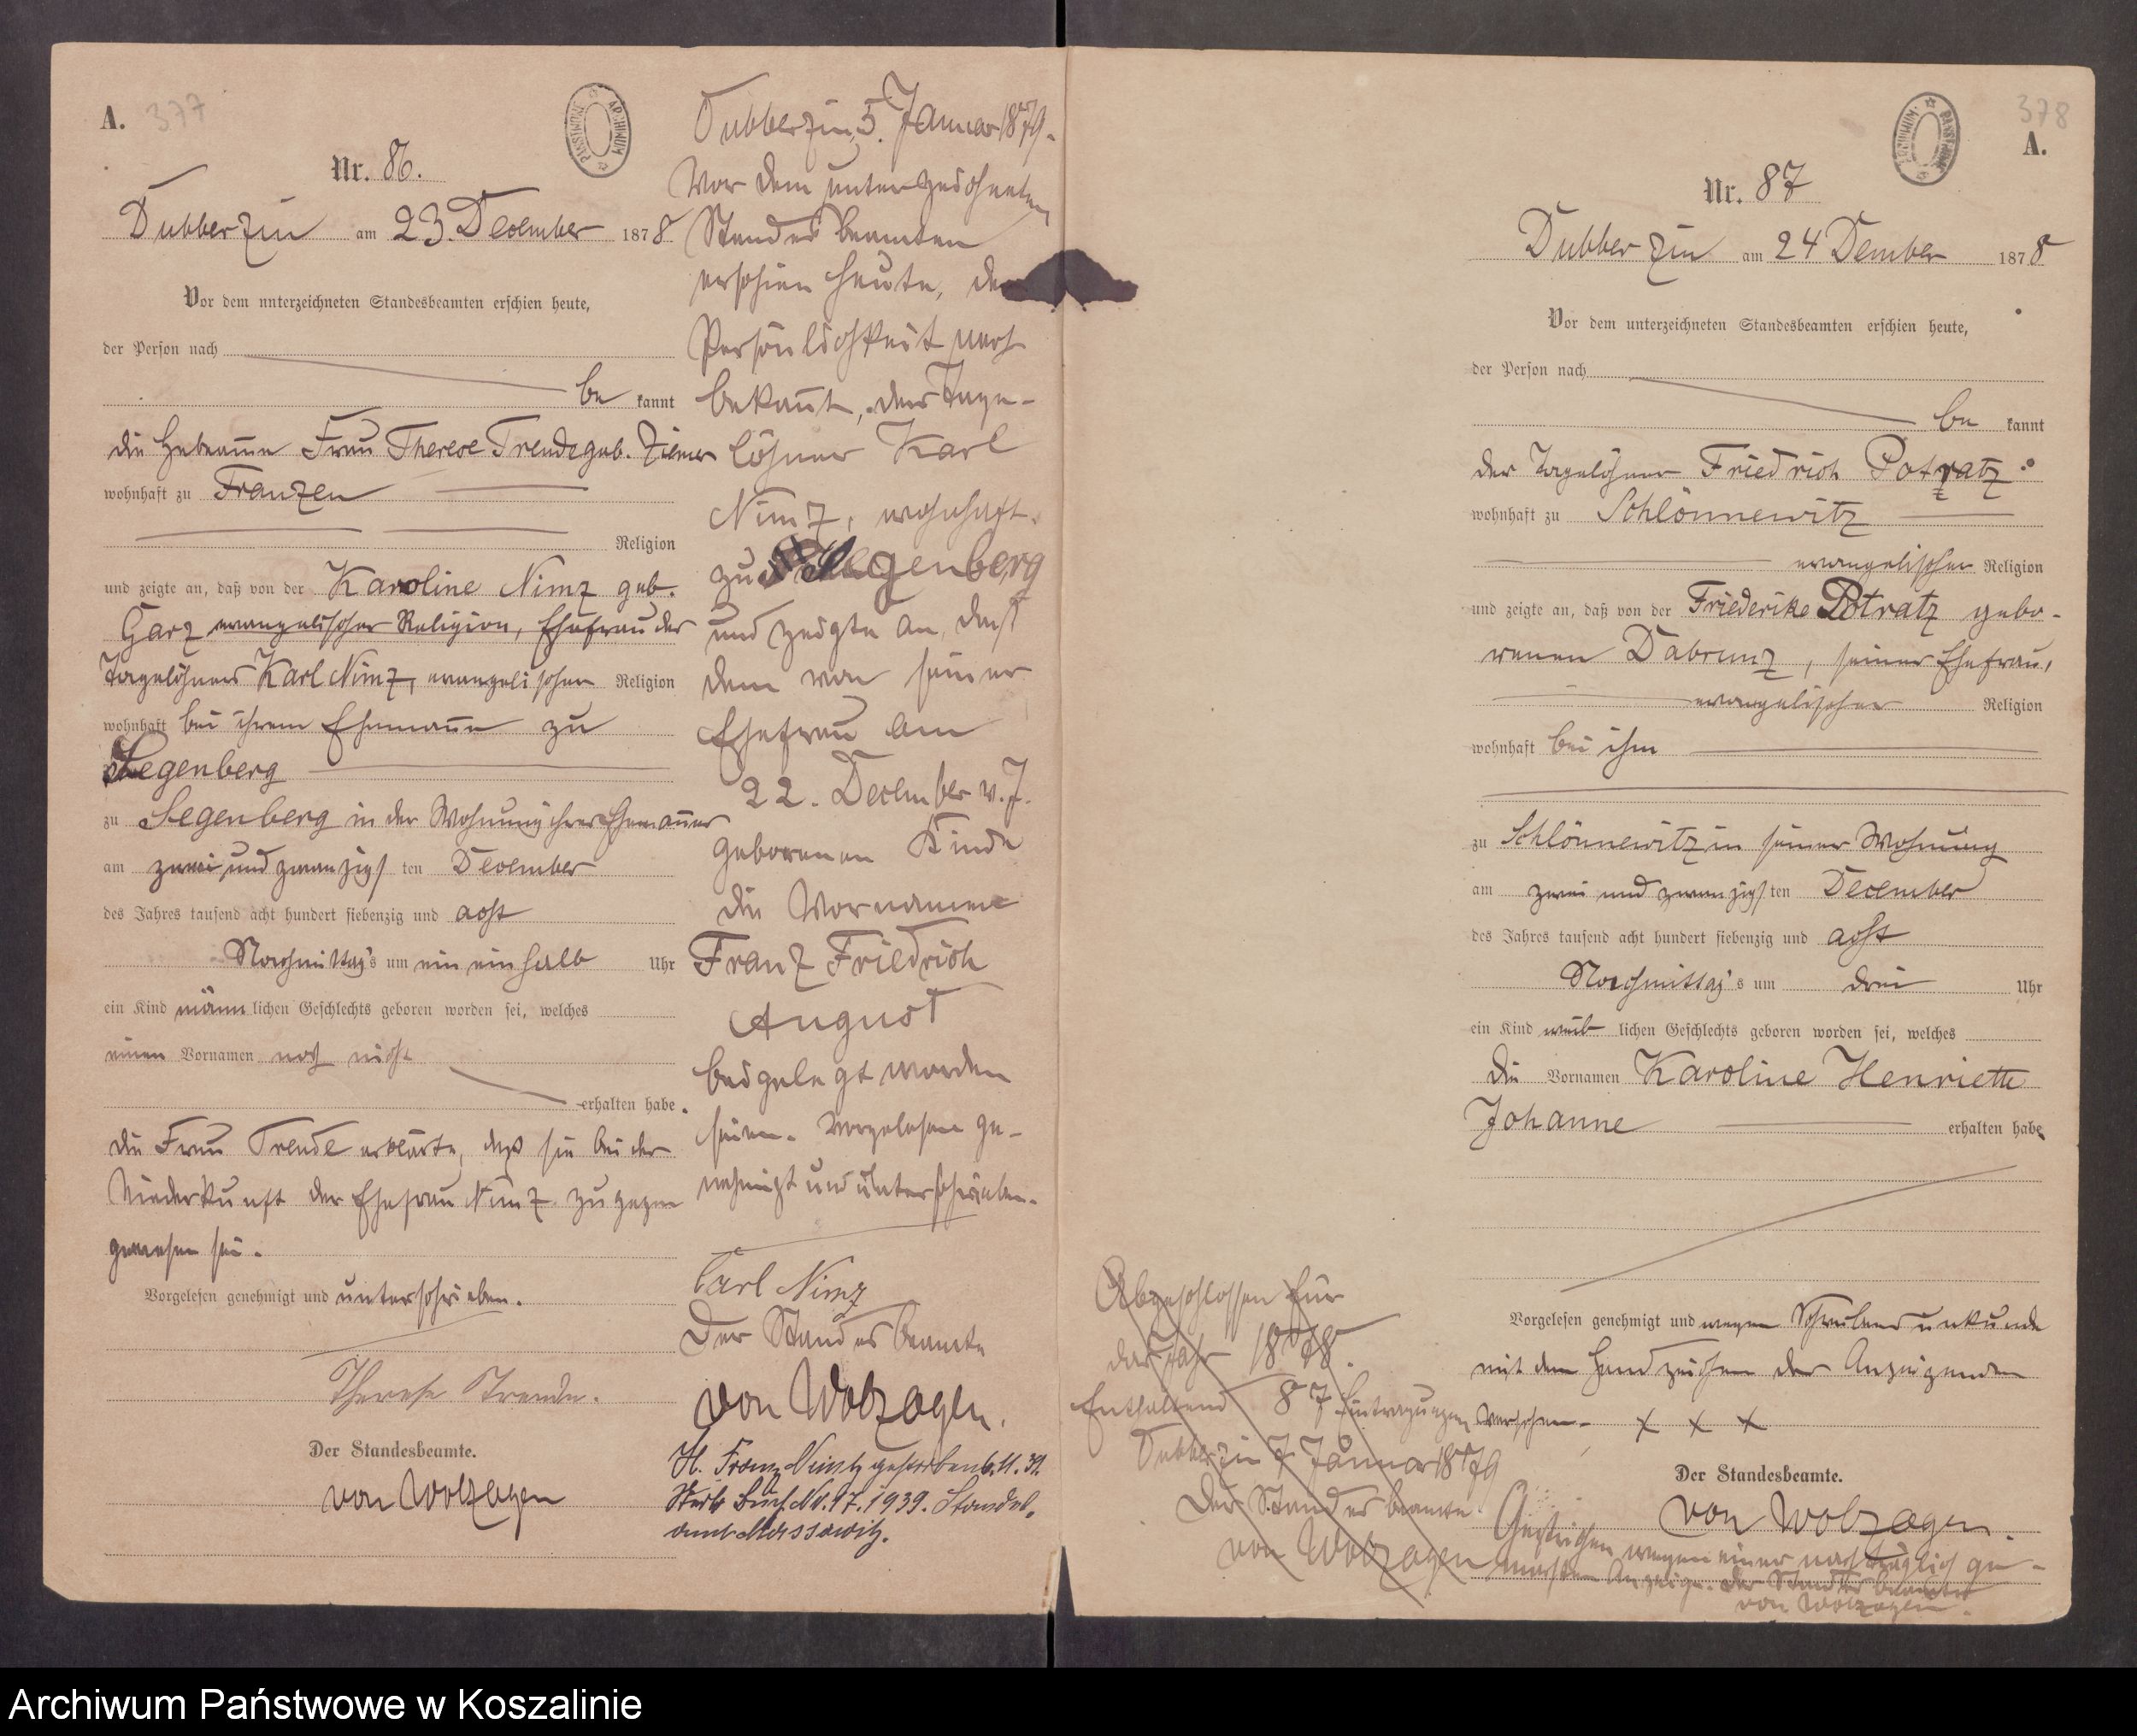 A. 377
PAŃSTWOWE ARCHIWUM
Nr. 86.
Dubberzin am 23. December 1878
Vor dem unterzeichneten Standesbeamten erschien heute,
der Person nach
bekannt
die Hebeamme Frau Therese Trende geb. Ziemer
wohnhaft zu Franzen
Religion
und zeigte an, daß von der Karoline Nimz geb.
Garz evangelischer Religion, Ehefrau des
Tagelöhners Karl Nimz, evangelischer Religion
wohnhaft bei ihrem Ehemanne zu
Segenberg
zu Segenberg in der Wohnung ihres Ehemannes
am zwei und zwanzigsten December
des Jahres tausend acht hundert siebenzig und acht
Nachmittags um ein ein halb Uhr
ein Kind männlichen Geschlechts geboren worden sei, welches
einen Vornamen noch nicht
erhalten habe.
Die Frau Trende erklärte, daß sie bei der
Niederkunft der Ehefrau Nimz zugegen
gewesen sei.
Vorgelesen genehmigt und unterschrieben.
Therese Trende.
Der Standesbeamte.
von Wolzogen
Dubberzin, 5. Januar 1879.
Vor dem unterzeichneten
Standesbeamten
erschien heute, der
Persönlichkeit nach
bekannt, der Tage-
löhner Karl
Nimz, wohnhaft
zu Segenberg
und zeigte an, daß
dem von seiner
Ehefrau am
22. December v. J.
geborenen Kinde
die Vornamen
Franz Friedrich
August
beigelegt worden
seien. Vorgelesen ge-
nehmigt und unterschrieben.
Carl Nimz
Der Standesbeamte
von Wolzogen.
H. Franz Nimtz gestorben 6.11.39.
Sterb Buch Nr. 17. 1939. Standes-
amt Massowitz.
378
A.
ARCHIWUM PAŃSTWOWE
Nr. 87
Dubberzin am 24 Dember 1878
Vor dem unterzeichneten Standesbeamten erschien heute,
der Person nach
bekannt
der Tagelöhner Friedrich Potratz
wohnhaft zu Schlönnewitz
evangelischer Religion
und zeigte an, daß von der Friederike Potratz gebo-
renen Dabrunz, seiner Ehefrau,
evangelischer Religion
wohnhaft bei ihm
zu Schlönnewitz in seiner Wohnung
am zwei und zwanzigsten December
des Jahres tausend acht hundert siebenzig und acht
Nachmittags um drei Uhr
ein Kind weiblichen Geschlechts geboren worden sei, welches
die Vornamen Karoline Henriette
Johanne erhalten habe
Vorgelesen genehmigt und wegen Schreibensunkunde
mit dem Handzeichen des Anzeigenden
versehen. x x x
Der Standesbeamte.
von Wolzogen.
Abgeschlossen für
das Jahr 1878.
Enthaltend 87 Eintragungen
Dubberzin 7 Januar 1879
Der Standesbeamte
von Wolzogen
Gestrichen wegen einer nachträglich ge-
machten Anzeige. Der Standesbeamte
von Wolzogen.
Archiwum Państwowe w Koszalinie